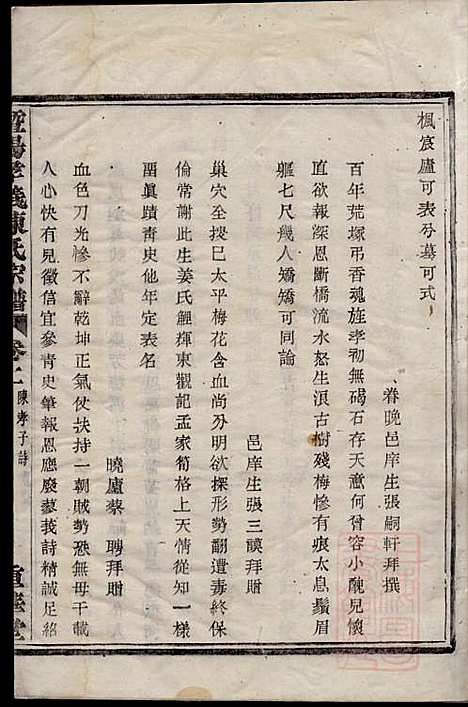 楓宸廬可表兮墓可式
春晚邑庠生張嗣軒拜撰
百年荒塚弔香魂旌孝初無碣石存天意何曾容小醜兒懷
直欲報深恩斷橋流水怒生浪古樹殘梅慘有痕太息鬚眉
軀七尺幾人矯矯可同論
邑庠生張三謨拜贈
巢穴全授已太平梅花含血尚分明欲探形勢翻遭毒終保
倫常謝此生姜氏鯉輝東觀記孟家筍格上天情從知一樣
留眞蹟靑史他年定表名
曉廬蔡聘拜贈
血色刀光慘不辭乾坤正氣仗扶持一朝賊勢殘無母千載
人心快有兒徵信宜參靑史筆報恩應廢蓼莪詩精誠足紹
暨陽孝義陳氏宗譜
卷二
陳孝子詩